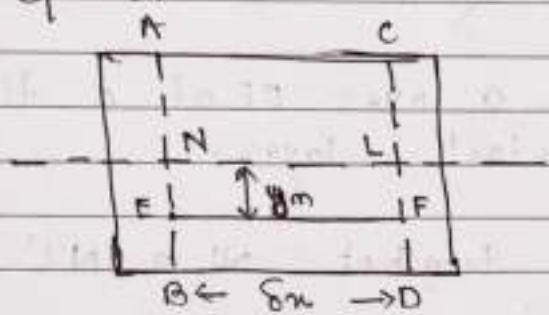 A C
N L
E ym F
B ← δx → D